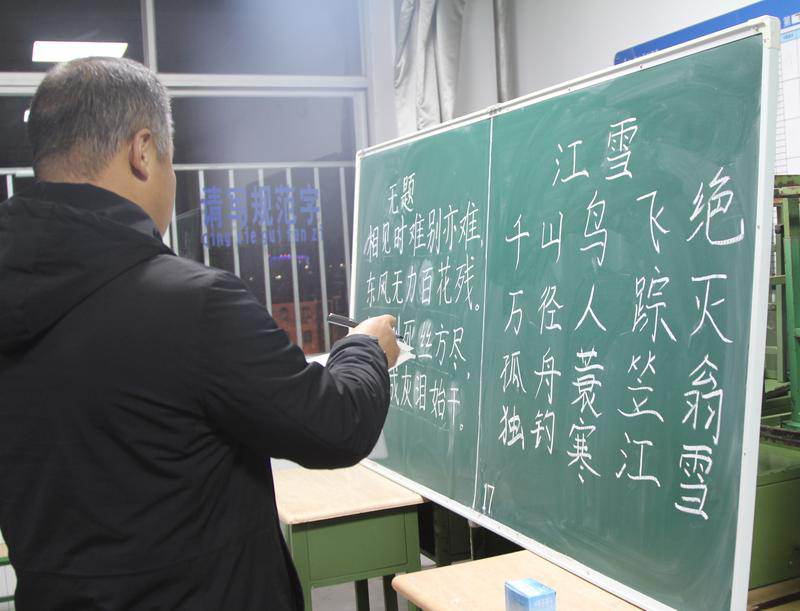 请写规范字
qing xie gui fan zi
无题
相见时难别亦难,
东风无力百花残。
死丝方尽,
成灰泪始干。
江雪
千山鸟飞绝
万径人踪灭
孤舟蓑笠翁
独钓寒江雪
17